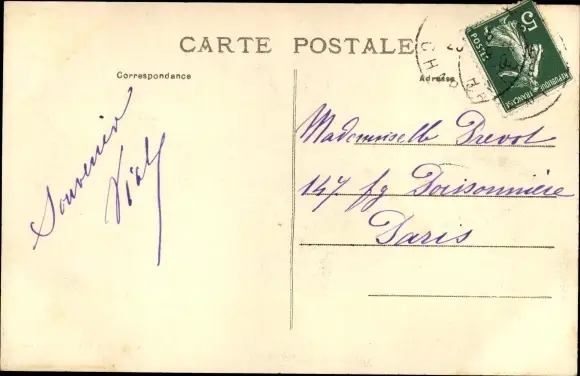 CARTE POSTALE
Correspondance
Adresse
5c
POSTES
REPUBLIQUE FRANCAISE
Souvenir
Mademoiselle Prevot
147 fg Poissonnière
Paris